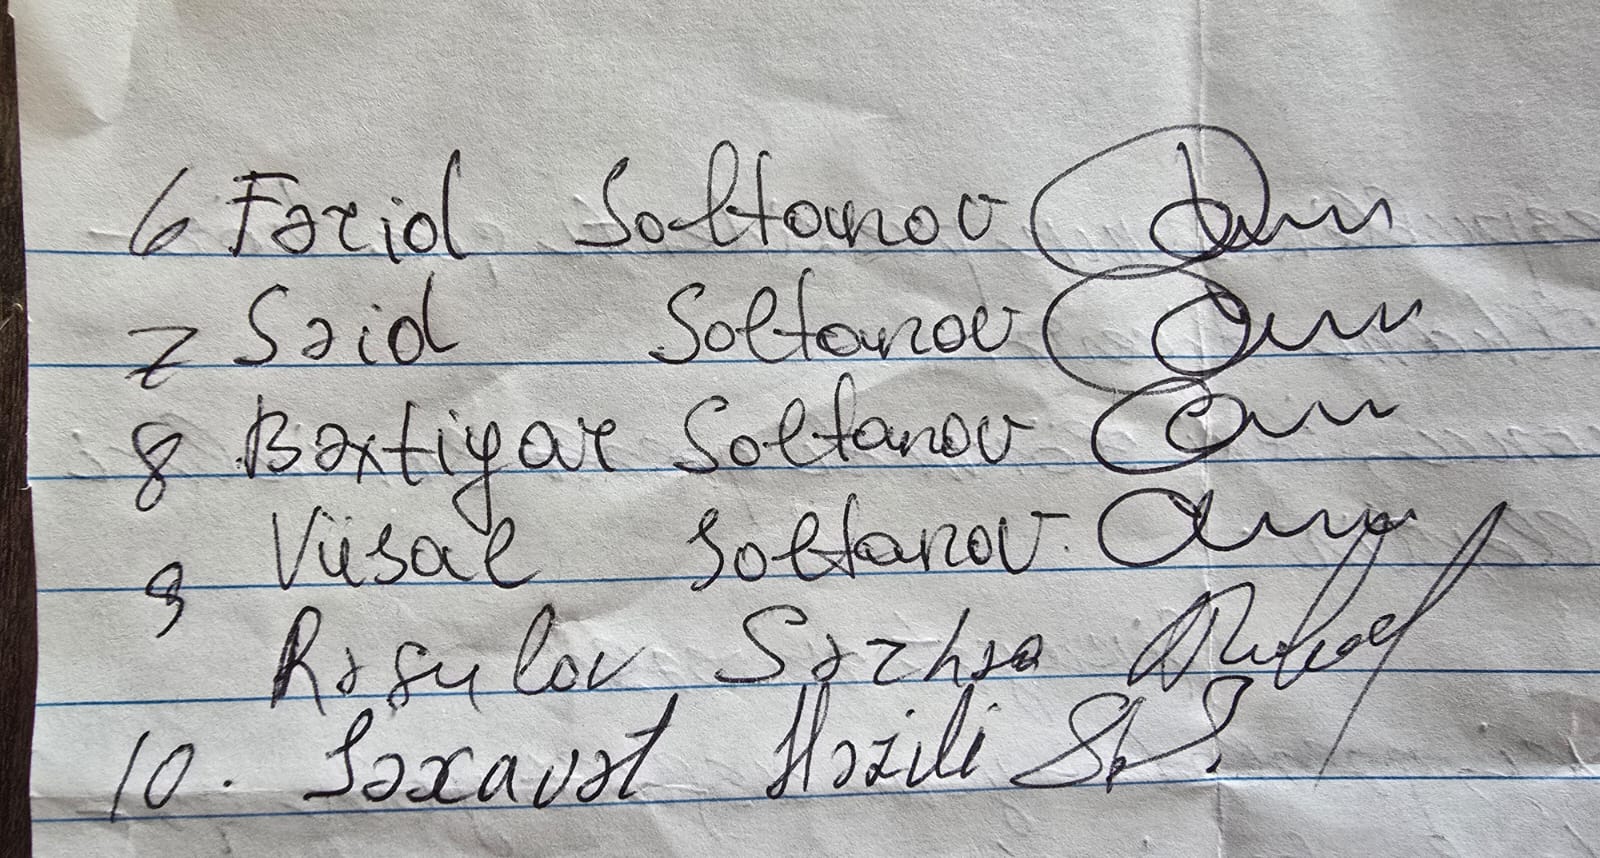 6 Fərid Soltanov
7 Səid Soltanov
8 Bəxtiyar Soltanov
Vüsal Soltanov.
9
Rəsulov
10. Səxavət Həzili